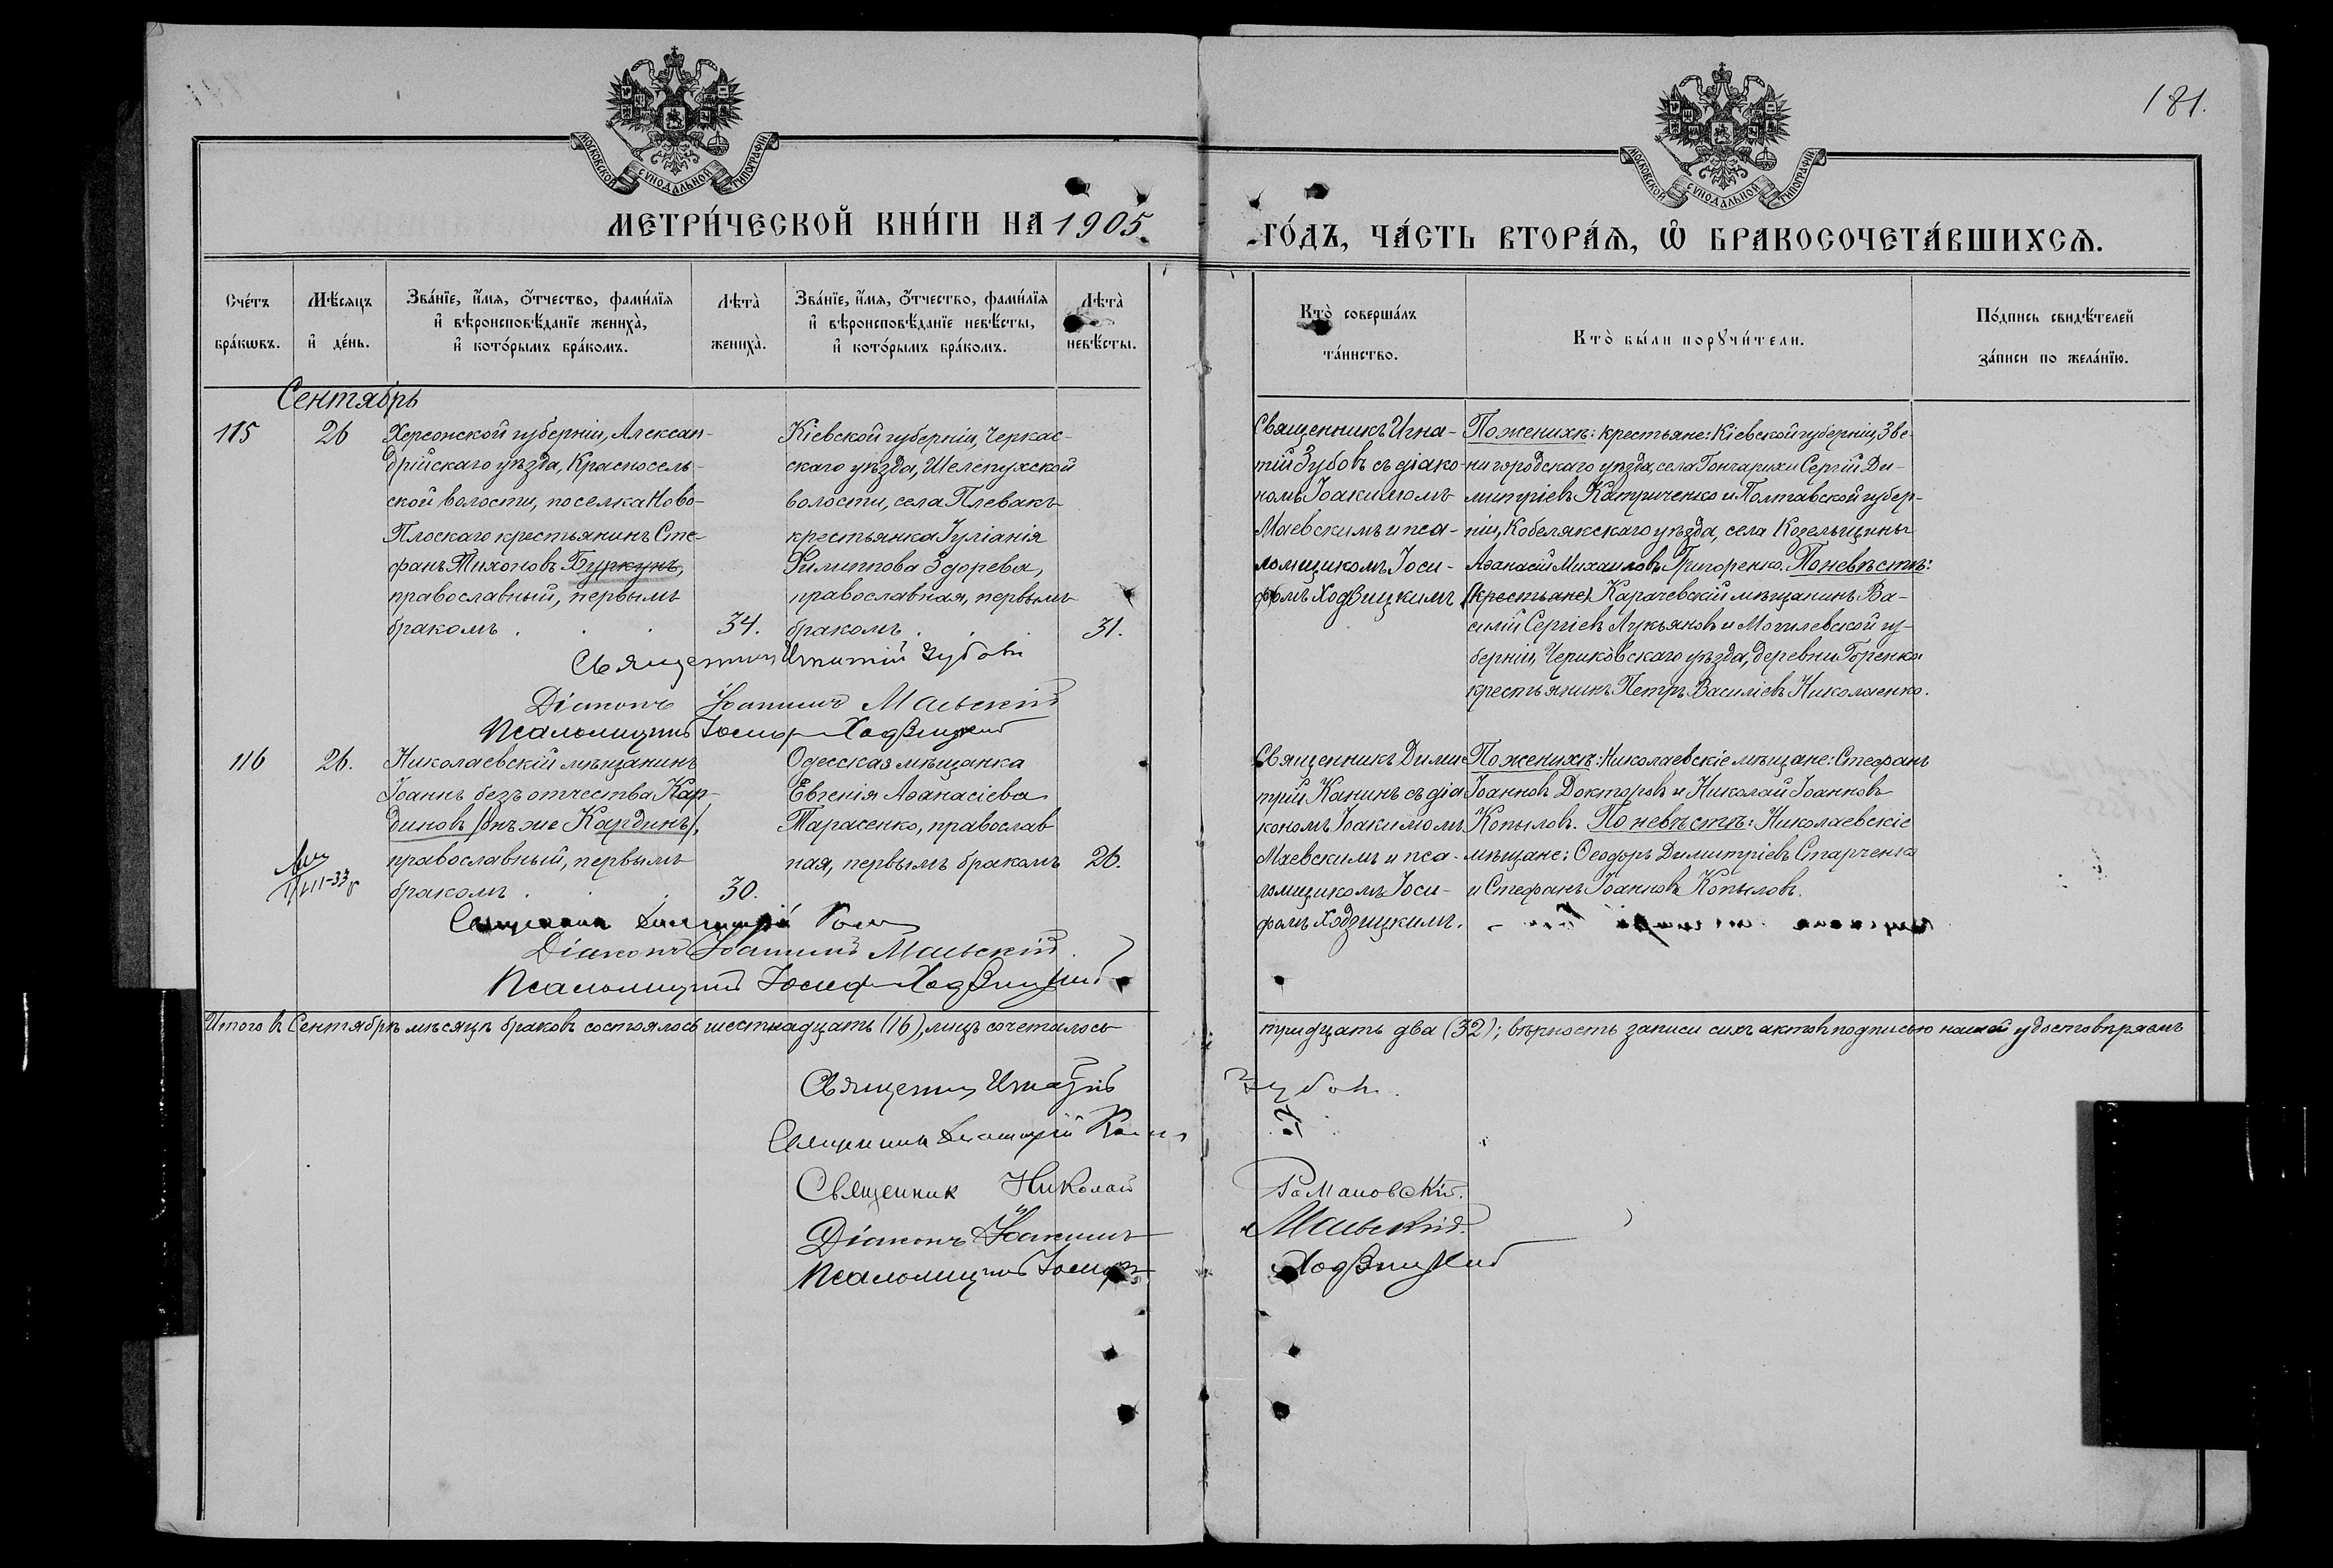 181.
МОСКОВСКОЙ СУНОДАЛЬНОЙ ТИПОГРАФІИ
МОСКОВСКОЙ СУНОДАЛЬНОЙ ТИПОГРАФІИ
МЕТРИ́ЧЕСКОЙ КНИ́ГИ НА 1905
ГО́ДЪ, ЧА́СТЬ ВТОРА́Ѧ, Ѿ БРАКОСОЧЕТА́ВШИХСѦ.
Сче́тъ
бра́кѡвъ.
Мѣ́сяцъ
и҆ де́нь.
Зва́нїе, и҆́мя, ѻ҆́тчество, фами́лїя
и҆ вѣроисповѣ́данїе жениха̀,
и҆ кото́рымъ бра́комъ.
Лѣта̀
жениха̀.
Зва́нїе, и҆́мя, ѻ҆́тчество, фами́лїя
и҆ вѣроисповѣ́данїе невѣ́сты,
и҆ кото́рымъ бра́комъ.
Лѣта̀
невѣ́сты.
Кто̀ соверша́лъ
та́инство.
Кто̀ бы́ли порꙋчи́тели.
По́дпись свидѣ́телей
за́писи по жела́нїю.
Сентябрь
115
26
Херсонской губерніи, Алексан-
дрійскаго уѣзда, Красносель-
ской волости, поселка Ново-
Плоскаго крестьянинъ Сте-
фанъ Тихоновъ Буркунъ,
православный, первымъ
бракомъ . . . 34.
Кіевской губерніи, Черкас-
скаго уѣзда, Шелепухской
волости, села Плевакъ
крестьянка Іуліанія
Филиппова Здорева,
православная, первымъ
бракомъ . . . 31.
Священникъ Игна-
тій Зубовъ съ діако-
номъ Іоакимомъ
Маевскимъ и пса-
ломщикомъ Іоси-
фомъ Ходзицкимъ
По женихѣ: крестьяне: Кіевской губерніи, Зве-
нигородскаго уѣзда, села Гончарихи Сергій Ди-
митріевъ Катриченко и Полтавской губер-
ніи, Кобелякскаго уѣзда, села Козельщины
Аѳанасій Михаиловъ Григоренко. По невѣстѣ:
(крестьяне) Карачевскій мѣщанинъ Ва-
силій Сергіевъ Лукьяновъ и Могилевской гу-
берніи, Чериковскаго уѣзда, деревни Горенки
крестьянинъ Петръ Василіевъ Николаенко.
Священникъ Игнатій Зубовъ
Діаконъ Іоакимъ Маевскій
Псаломщикъ Іосифъ Ходзицкій
116
26.
Николаевскій мѣщанинъ
Іоаннъ безъ отчества Кар-
диновъ (онъ же Кардинъ),
православный, первымъ
бракомъ . . . 30.
Одесская мѣщанка
Евгенія Аѳанасіева
Тарасенко, православ
ная, первымъ бракомъ 26.
Священникъ Дими-
трій Канинъ съ діа
кономъ Іоакимомъ
Маевскимъ и пса-
ломщикомъ Іоси-
фомъ Ходзицкимъ.
По женихѣ: Николаевскіе мѣщане: Стефанъ
Іоанновъ Докторовъ и Николай Іоанновъ
Копыловъ. По невѣстѣ: Николаевскіе
мѣщане: Ѳеодоръ Димитріевъ Старченко
и Стефанъ Іоанновъ Копыловъ.
Священникъ Димитрій
Діаконъ Іоакимъ Маевскій.
Псаломщикъ Іосифъ Ходзицкій
Итого въ Сентябрѣ мѣсяцѣ браковъ состоялось шестнадцать (16), лицъ сочеталось
тридцать два (32); вѣрность записи сихъ актовъ подписью нашей удостовѣряемъ
Священникъ Игнатій Зубовъ.
Священникъ Димитрій Канинъ
Священник Николай Романовскій.
Діаконъ Іоакимъ Маевскій.
Псаломщикъ Іосифъ Ходзицкій